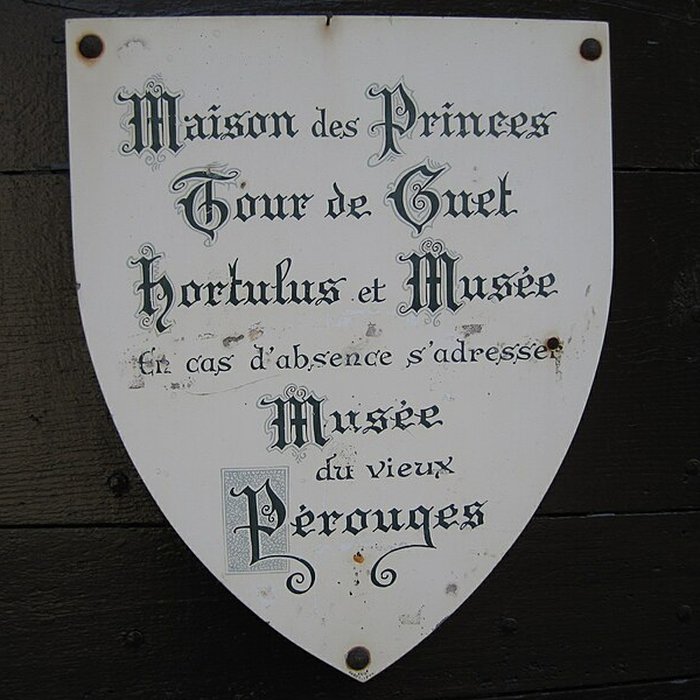 Maison des Princes
Tour de Guet
hortulus et Musée
En cas d'absence s'adresser
Musée
du vieux
Pérouges